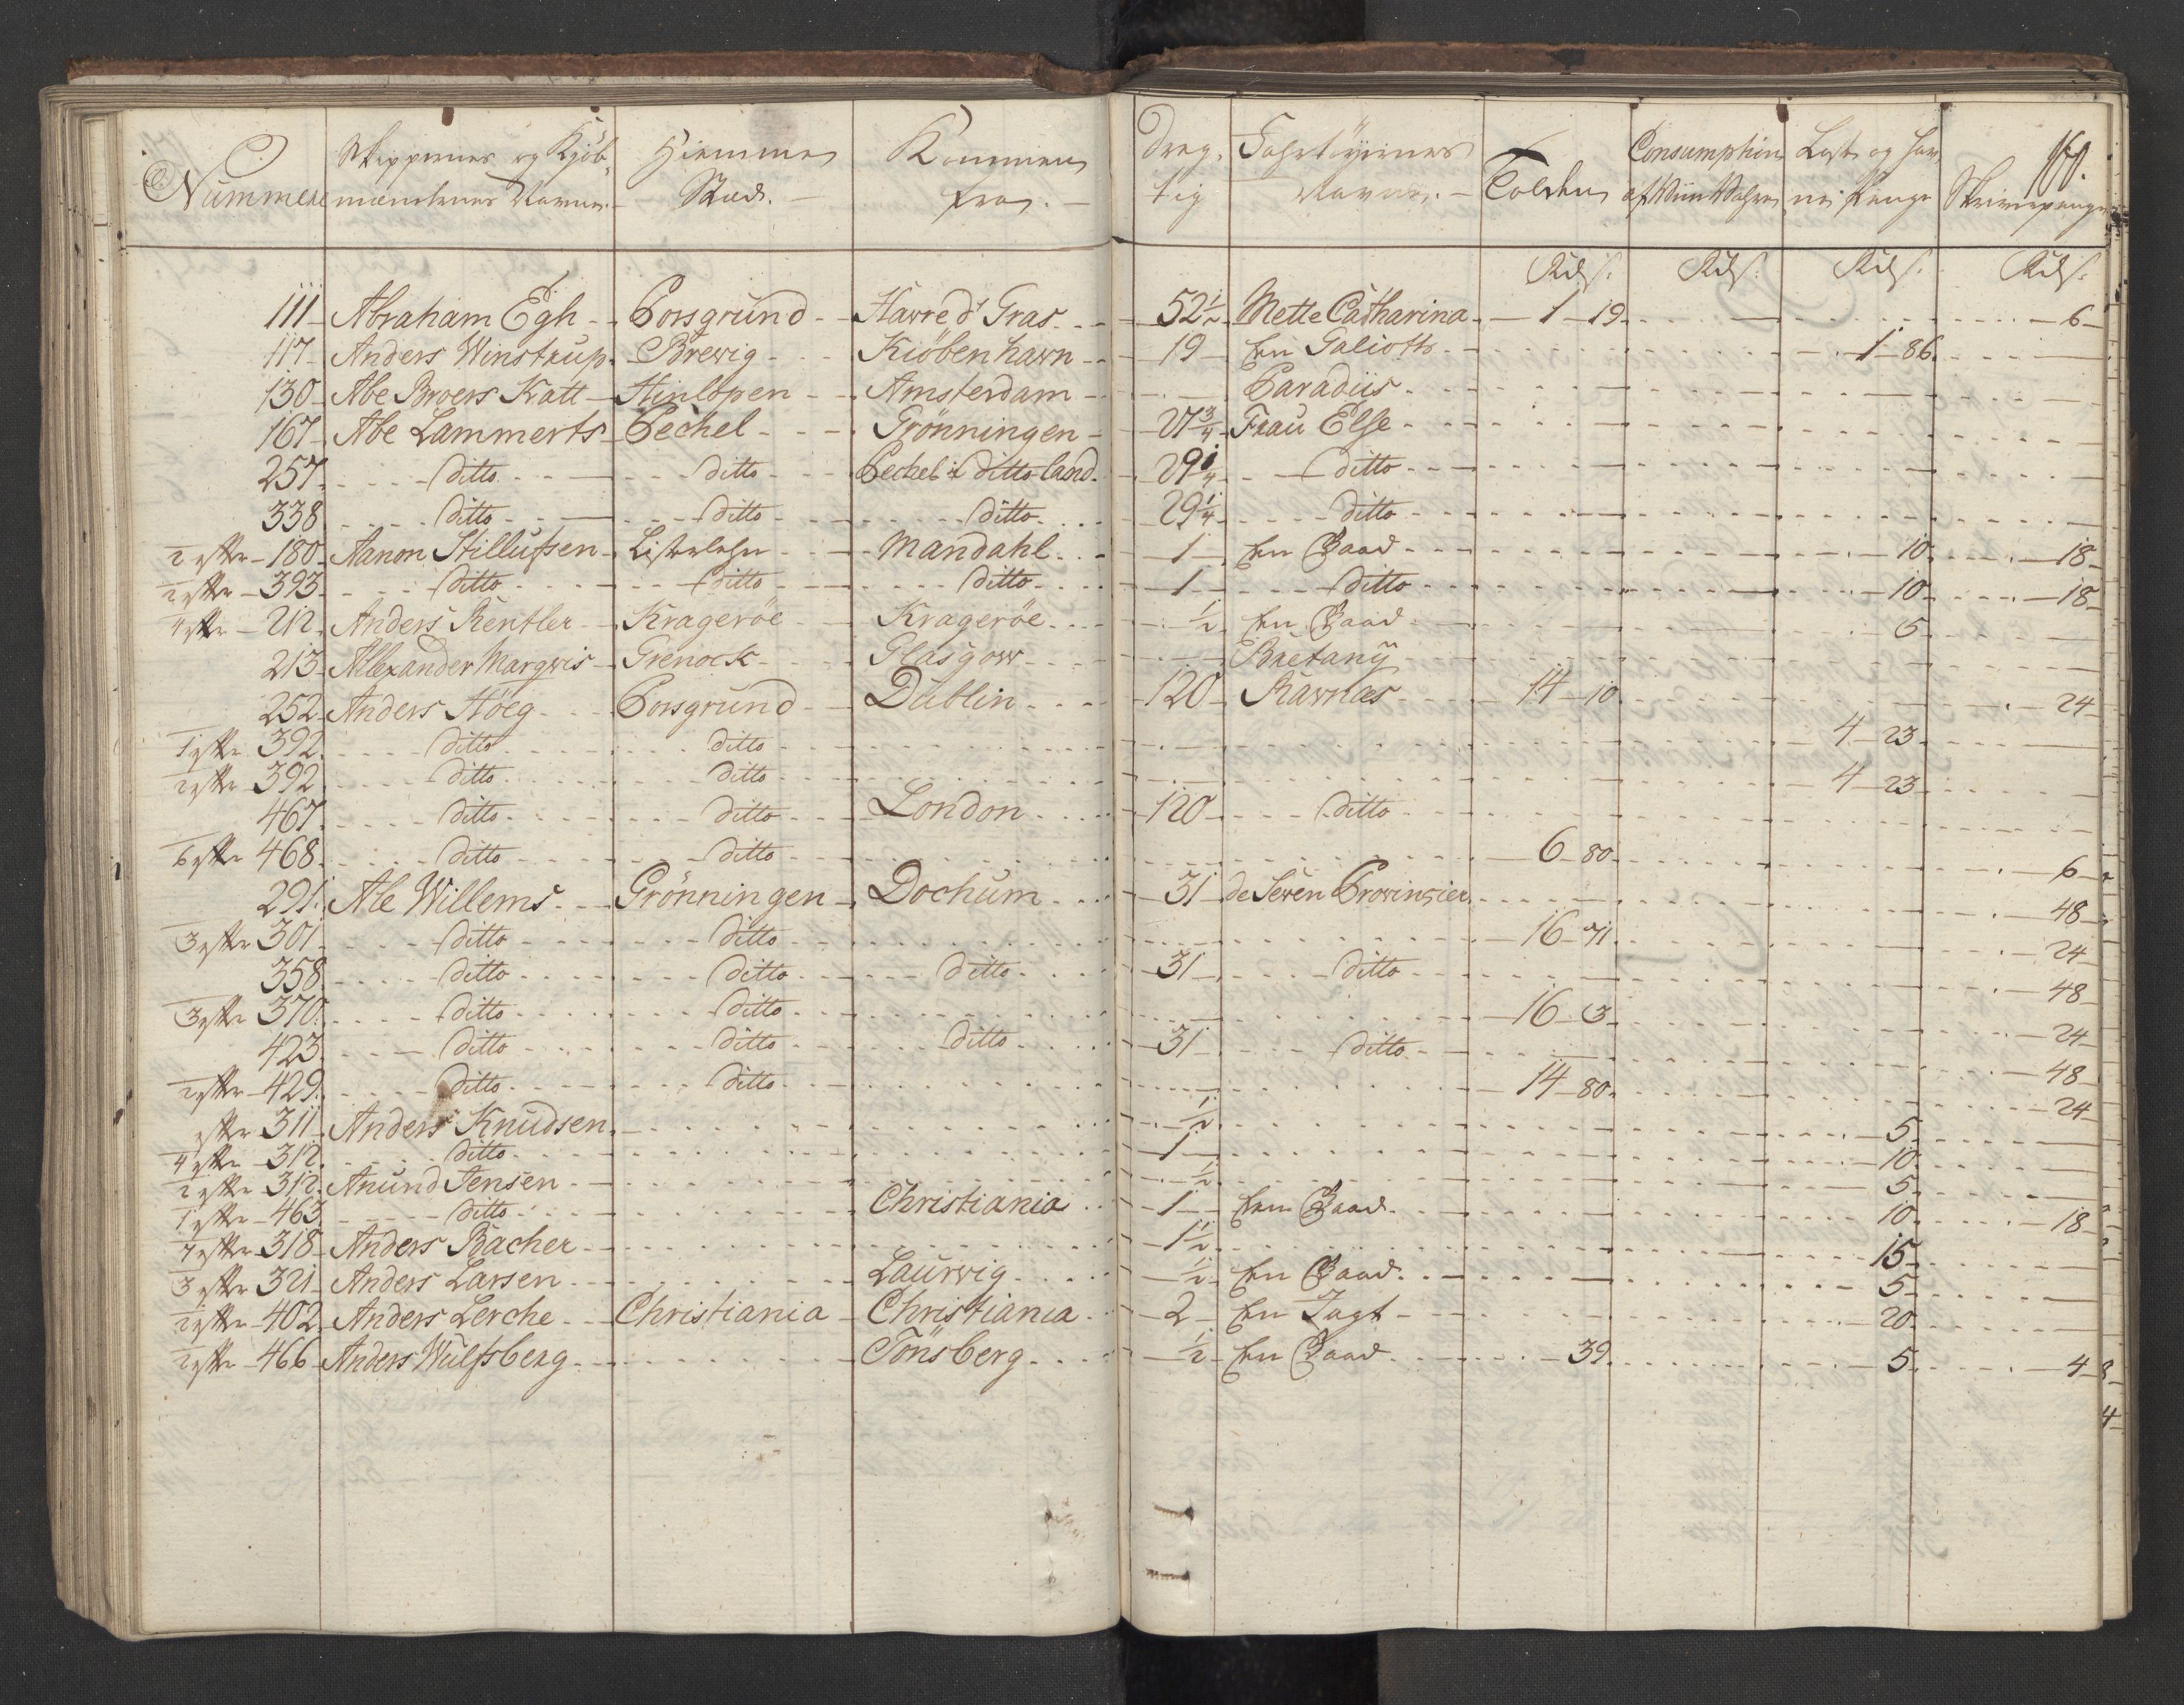 Nummere | Skippernes og Kjøb- mændenes Navne. | Hiemme Stæd. | Kommen fra. | Dræg- tig | Fahrtöyernes Navne. | Tolden | Consumption af Viin Vahre | Last og nei Penge | Skrivepenge
Rd s. | Rd s. | Rd s. | Rd s.
111 | Abraham Egh | Porsgrund | Havre d' Gras | 52½ | Mette Catharina | 1-19 | 6
117 | Anders Winstrup | Brevig | Kiöbenhavn | 19 | En Galioth | 1-86
130 | Abe Broers Katt | Hinlopen | Amsterdam | Paradiis
167 | Abe Lammerts | Pechel | Grönningen | 27¾ | Frau Else
257 | ditto | ditto | Pechel i ditto land | 29¼ | ditto
338 | ditto | ditto | ditto | 29¼ | ditto
2 180 | Aanon Stillufsen | Listerlehn | Mandahl | 1 | En Baad | 10 | 18
2 393 | ditto | ditto | ditto | 1 | ditto | 10 | 18
4 212 | Anders Rentler | Krageröe | Krageröe | ½ | En Baad | 5
213 | Allexander Marqvis | Grenock | Glasgow | Bretanÿ
252 | Anders Höeg | Porsgrund | Dublin | 120 | Ravnas | 14-10 | 24
1 392 | ditto | ditto | 4-23
2 392 | ditto | ditto | 4-23
467 | ditto | ditto | London | 120 | ditto
6 468 | ditto | ditto | 6-80 | 6
291 | Ale Willems | Grönningen | Dochum | 31 | de Seven Provinsier | 48
3 301 | ditto | ditto | 16-71 | 24
358 | ditto | ditto | ditto | 31 | ditto | 48
3 370 | ditto | ditto | 16-3 | 24
423 | ditto | ditto | ditto | 31 | ditto | 48
2 429 | ditto | ditto | 14-80 | 24
311 | Anders Knudsen | ½ | 5
4 312 | ditto | 1 | 10
2 312 | Anund Jensen | ½ | 5
1 463 | ditto | Christiania | 1 | Een Baad | 10 | 18
7 318 | Anders Bacher | 1½ | 15
3 321 | Anders Larsen | Laurvig | ½ | En Baad | 5
2 402 | Anders Lerche | Christiania | Christiania | 2 | En Jagt | 20
2 466 | Anders Wulfsberg | Tönsberg | ½ | En Baad | 39 | 5 | 4